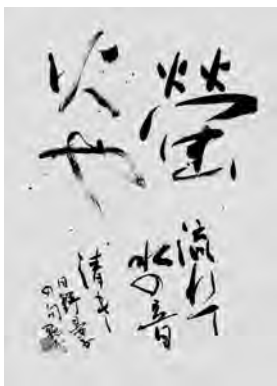 螢
火や
流れて
水の音
清し
日野
の句